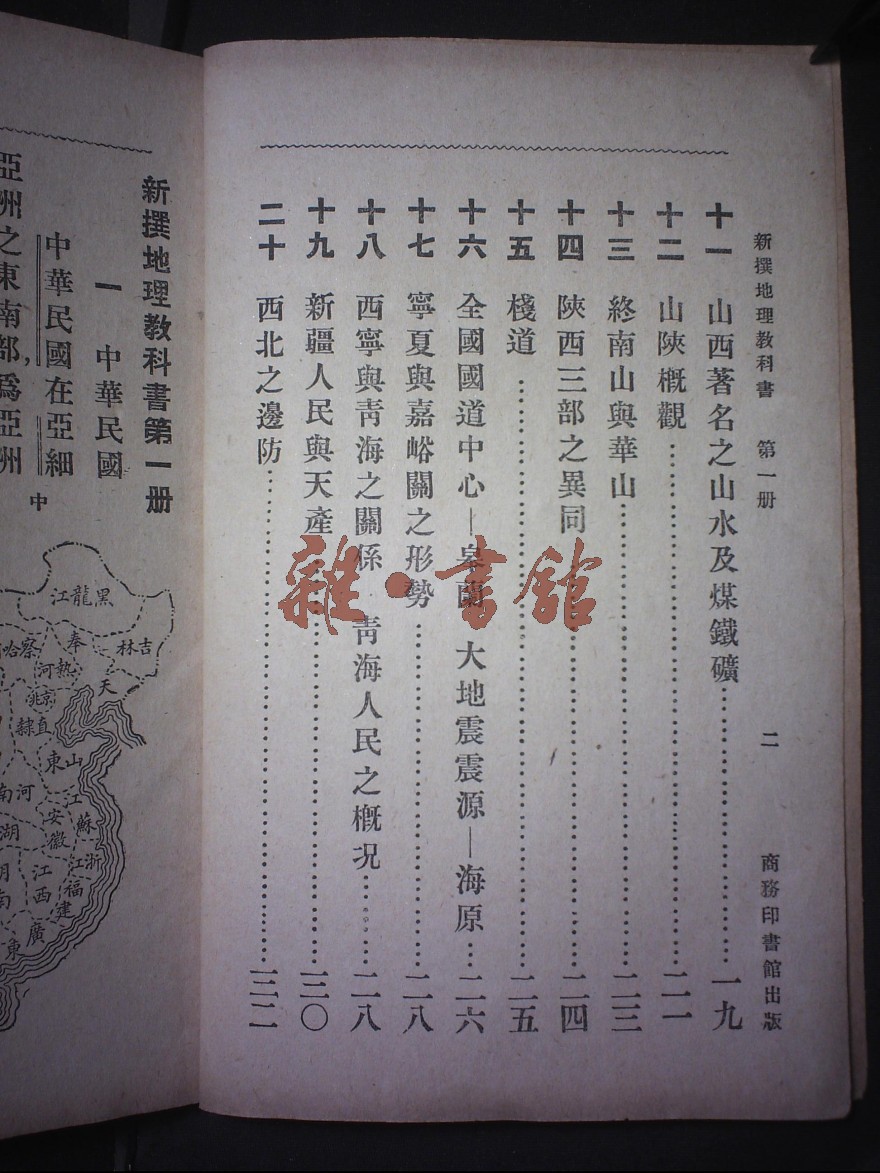 新撰地理教科書 第一册 二 商務印書館出版
十一 山西著名之山水及煤鐵礦……一九
十二 山陝概觀……二一
十三 終南山與華山……二三
十四 陝西三部之異同……二四
十五 棧道……二五
十六 全國國道中心—皋蘭 大地震震源—海原…二六
十七 寧夏與嘉峪關之形勢……二八
十八 西寧與青海之關係 青海人民之概況……二八
十九 新疆人民與天產……三〇
二十 西北之邊防……三二
雜·書館
新撰地理教科書第一册
一 中華民國
中華民國在亞細
亞洲之東南部,爲亞洲
中
黑龍江
吉林
奉天
熱河
察哈
京兆
直隸
山東
河南
江蘇
安徽
湖
浙江
江西
福建
南
廣東